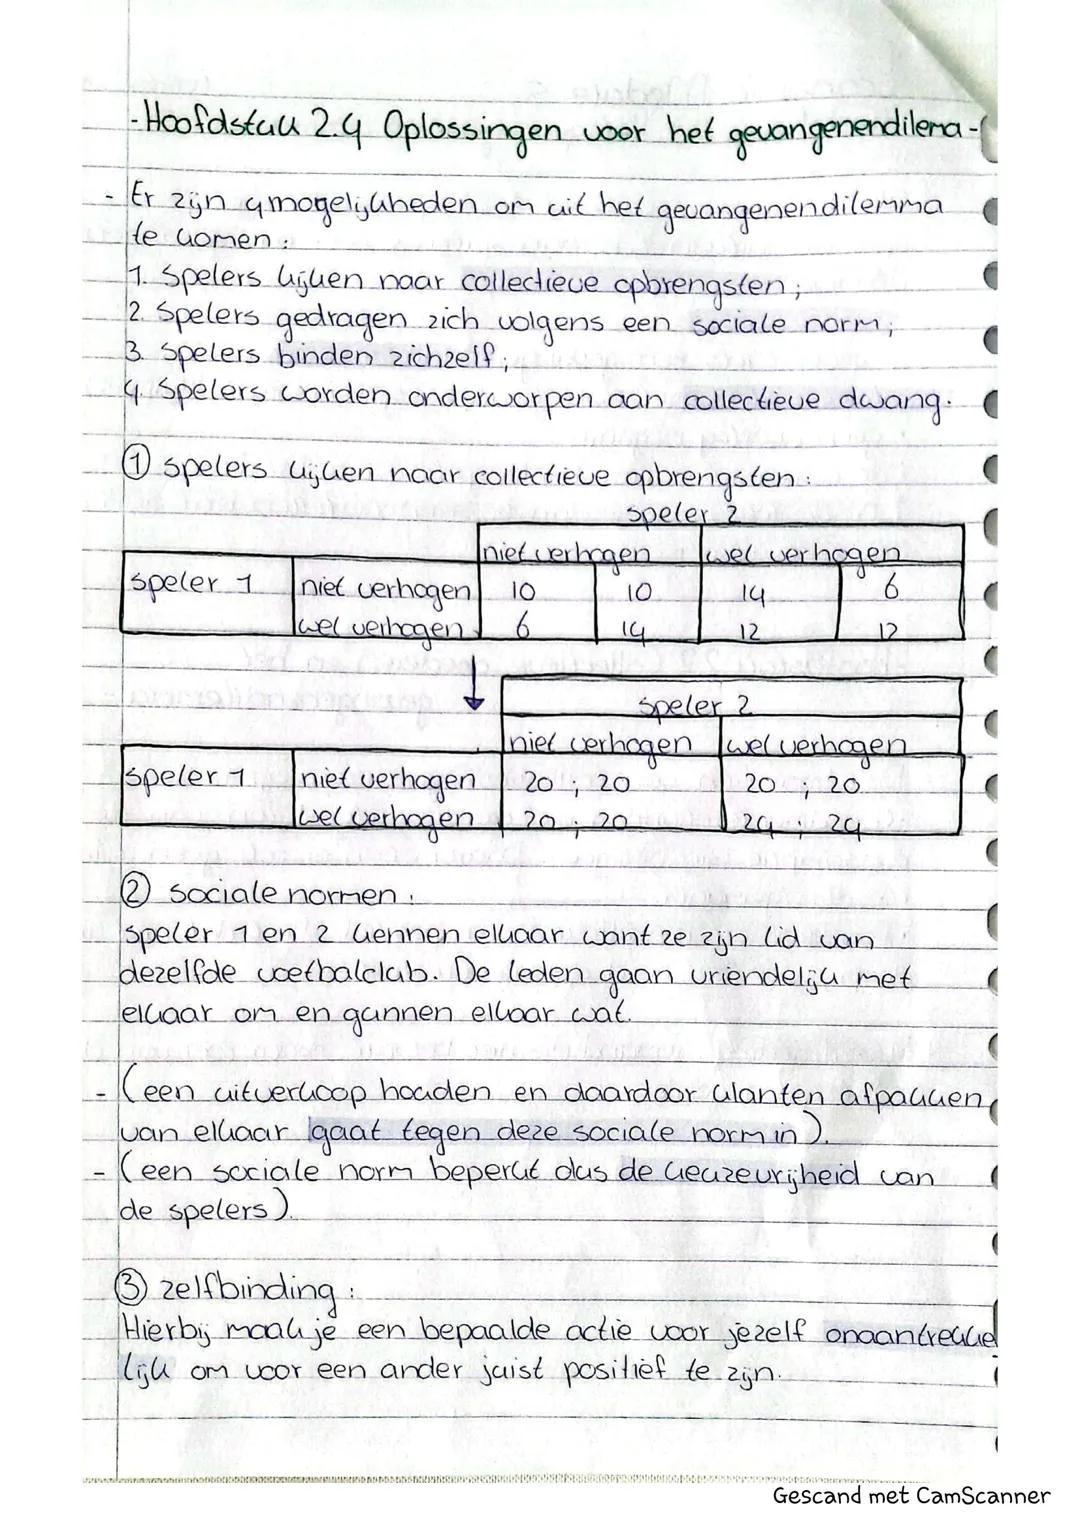 -Hoofdstuk 2.4 Oplossingen voor het gevangenendilema-
- Er zijn 4 mogelijkheden om uit het gevangenendilemma
te komen:
1. Spelers kijken naar collectieve opbrengsten;
2. Spelers gedragen zich volgens een sociale norm;
3. Spelers binden zichzelf;
4. Spelers worden onderworpen aan collectieve dwang.
① spelers kijken naar collectieve opbrengsten:
speler 2
niet verhogen wel verhogen
speler 1 niet verhogen 10 10 14 6
wel verhogen 6 14 12 12
↓
speler 2
niet verhogen wel verhogen
speler 1 niet verhogen 20 ; 20 20 ; 20
wel verhogen 20 ; 20 24 ; 24
② sociale normen:
speler 1 en 2 kennen elkaar want ze zijn lid van
dezelfde voetbalclub. De leden gaan vriendelijk met
elkaar om en gunnen elkaar wat.
- (een uitverkoop houden en daardoor klanten afpakken
van elkaar gaat tegen deze sociale norm in).
- (een sociale norm beperkt dus de keuzevrijheid van
de spelers).
③ zelfbinding:
Hierbij maak je een bepaalde actie voor jezelf onaantrekke
lijk om voor een ander juist positief te zijn.
Gescand met CamScanner